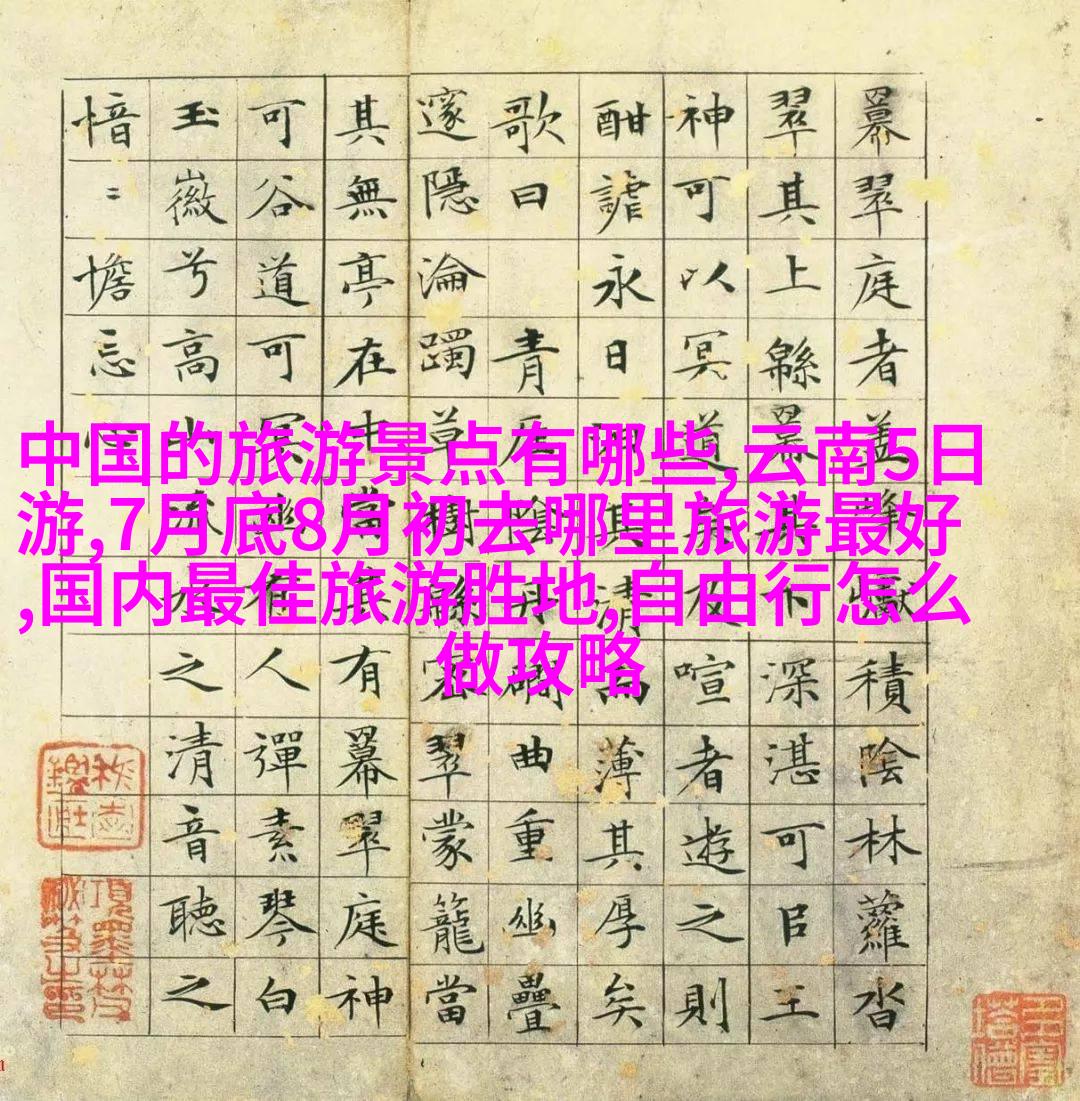 羃翠庭者蓋積陰林蘿沓
翠其上緜羃深湛可㠯王
神可以冥道及喧者遊之則
酣謔永日其清薄其厚矣
歌曰 青陰丹磵曲重幽疊
邃隱淪躅草樹緜密翠蒙籠當
其無亭在中當有羃翠庭神
可谷道可有人彈素琴白
玉徽兮高之清音聽之
愔〻憺忘
中国的旅游景点有哪些,云南5日
游,7月底8月初去哪里旅游最好
,国内最佳旅游胜地,自由行怎么
做攻略